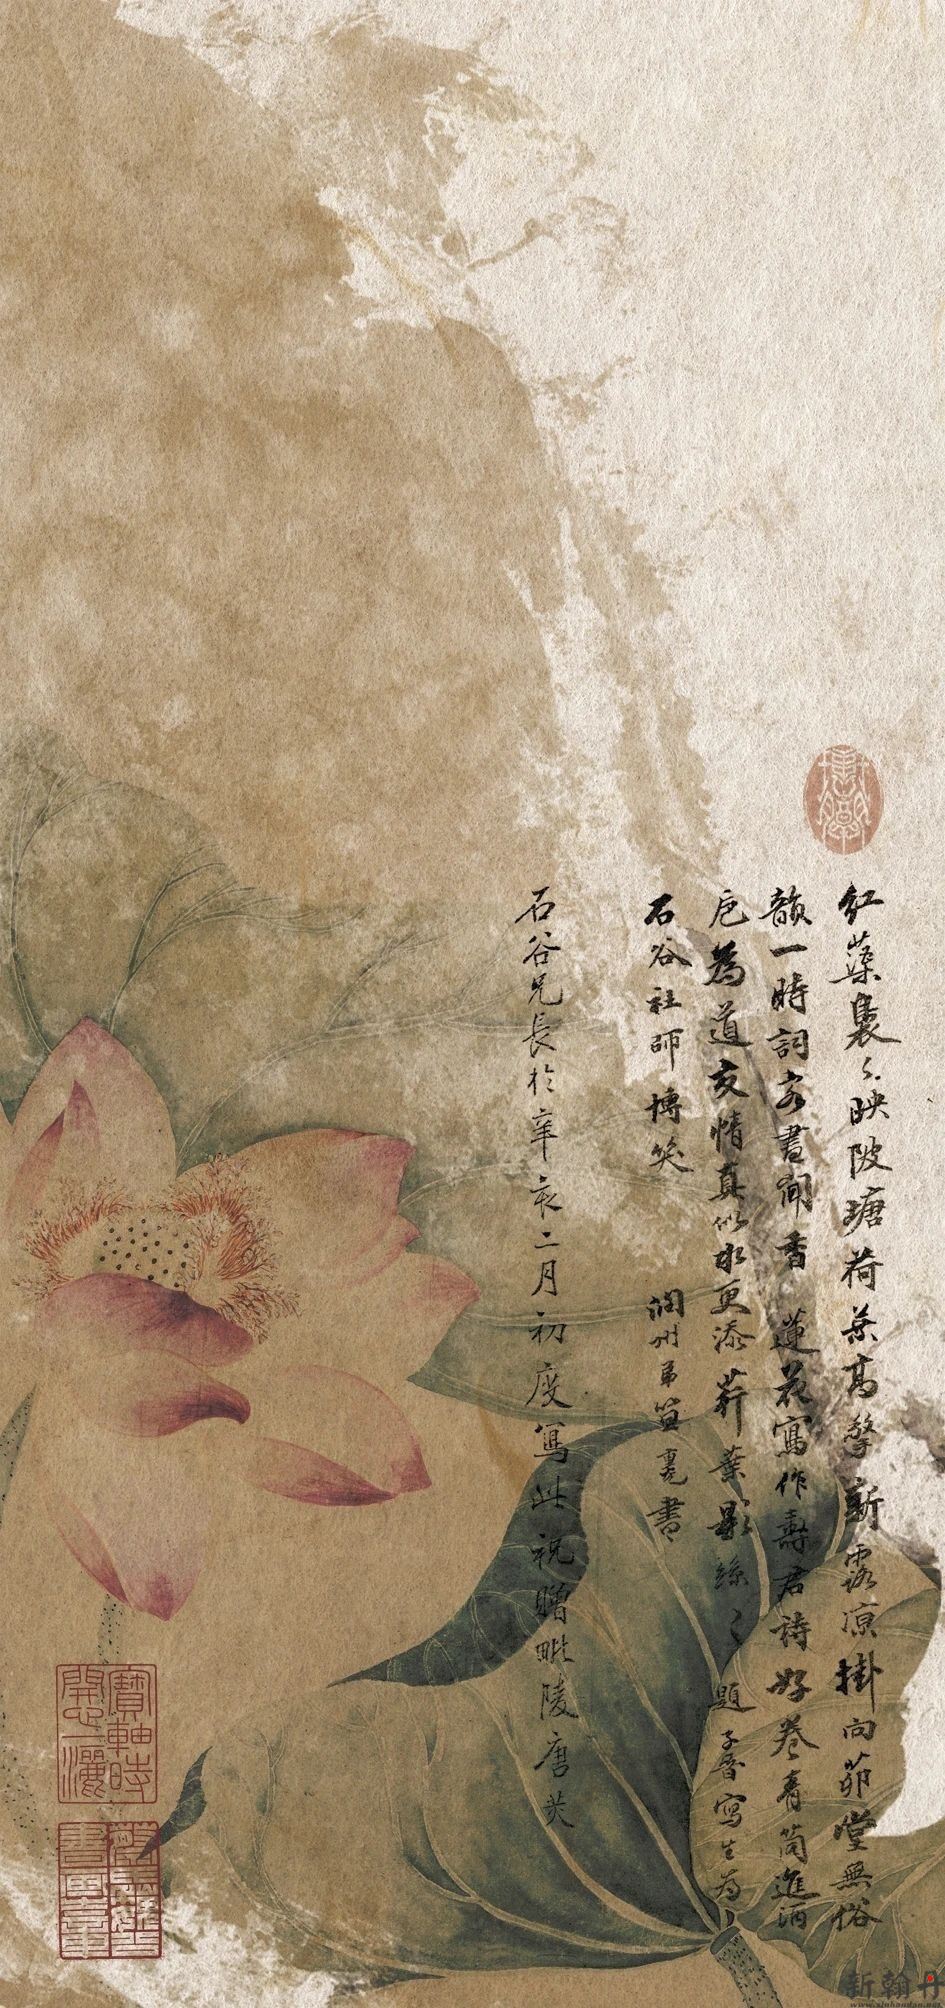 紅蕖裊〻映陂塘荷葉高擎新露涼掛向茆堂無俗
韻一時詞客盡聞香 蓮花寫作壽君詩好卷青筒進酒
卮為道交情真似水更添荇葉影絲〻題子晉寫生為
石谷社師博笑 潤州弟笪重光書
石谷兄長於辛亥二月初度寫此祝贈毗陵唐炗
寶軸時
開心一灑
新翰丹